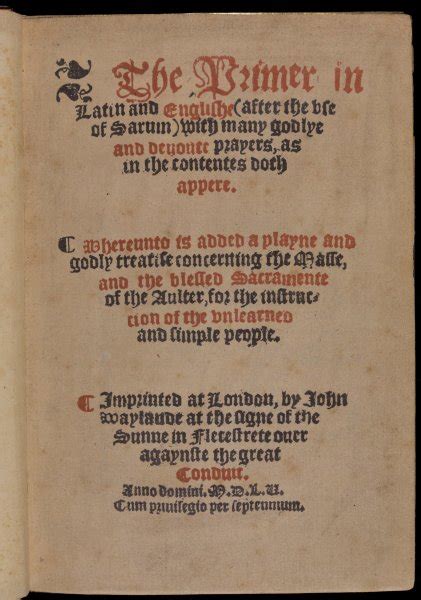 The Primer in
Latin and Englishe (after the vse
of Sarum) with many godlye
and deuoute prayers, as
in the contentes doth
appere.
¶ Whereunto is added a playne and
godly treatise concerning the Masse,
and the blessed Sacramente
of the Aulter, for the instruc-
tion of the vnlearned
and simple people.
¶ Imprinted at London, by John
Waylande at the signe of the
Sunne in Fletestrete ouer
agaynste the great
Conduit.
Anno domini. M.D.L.V.
Cum priuilegio per septennium.